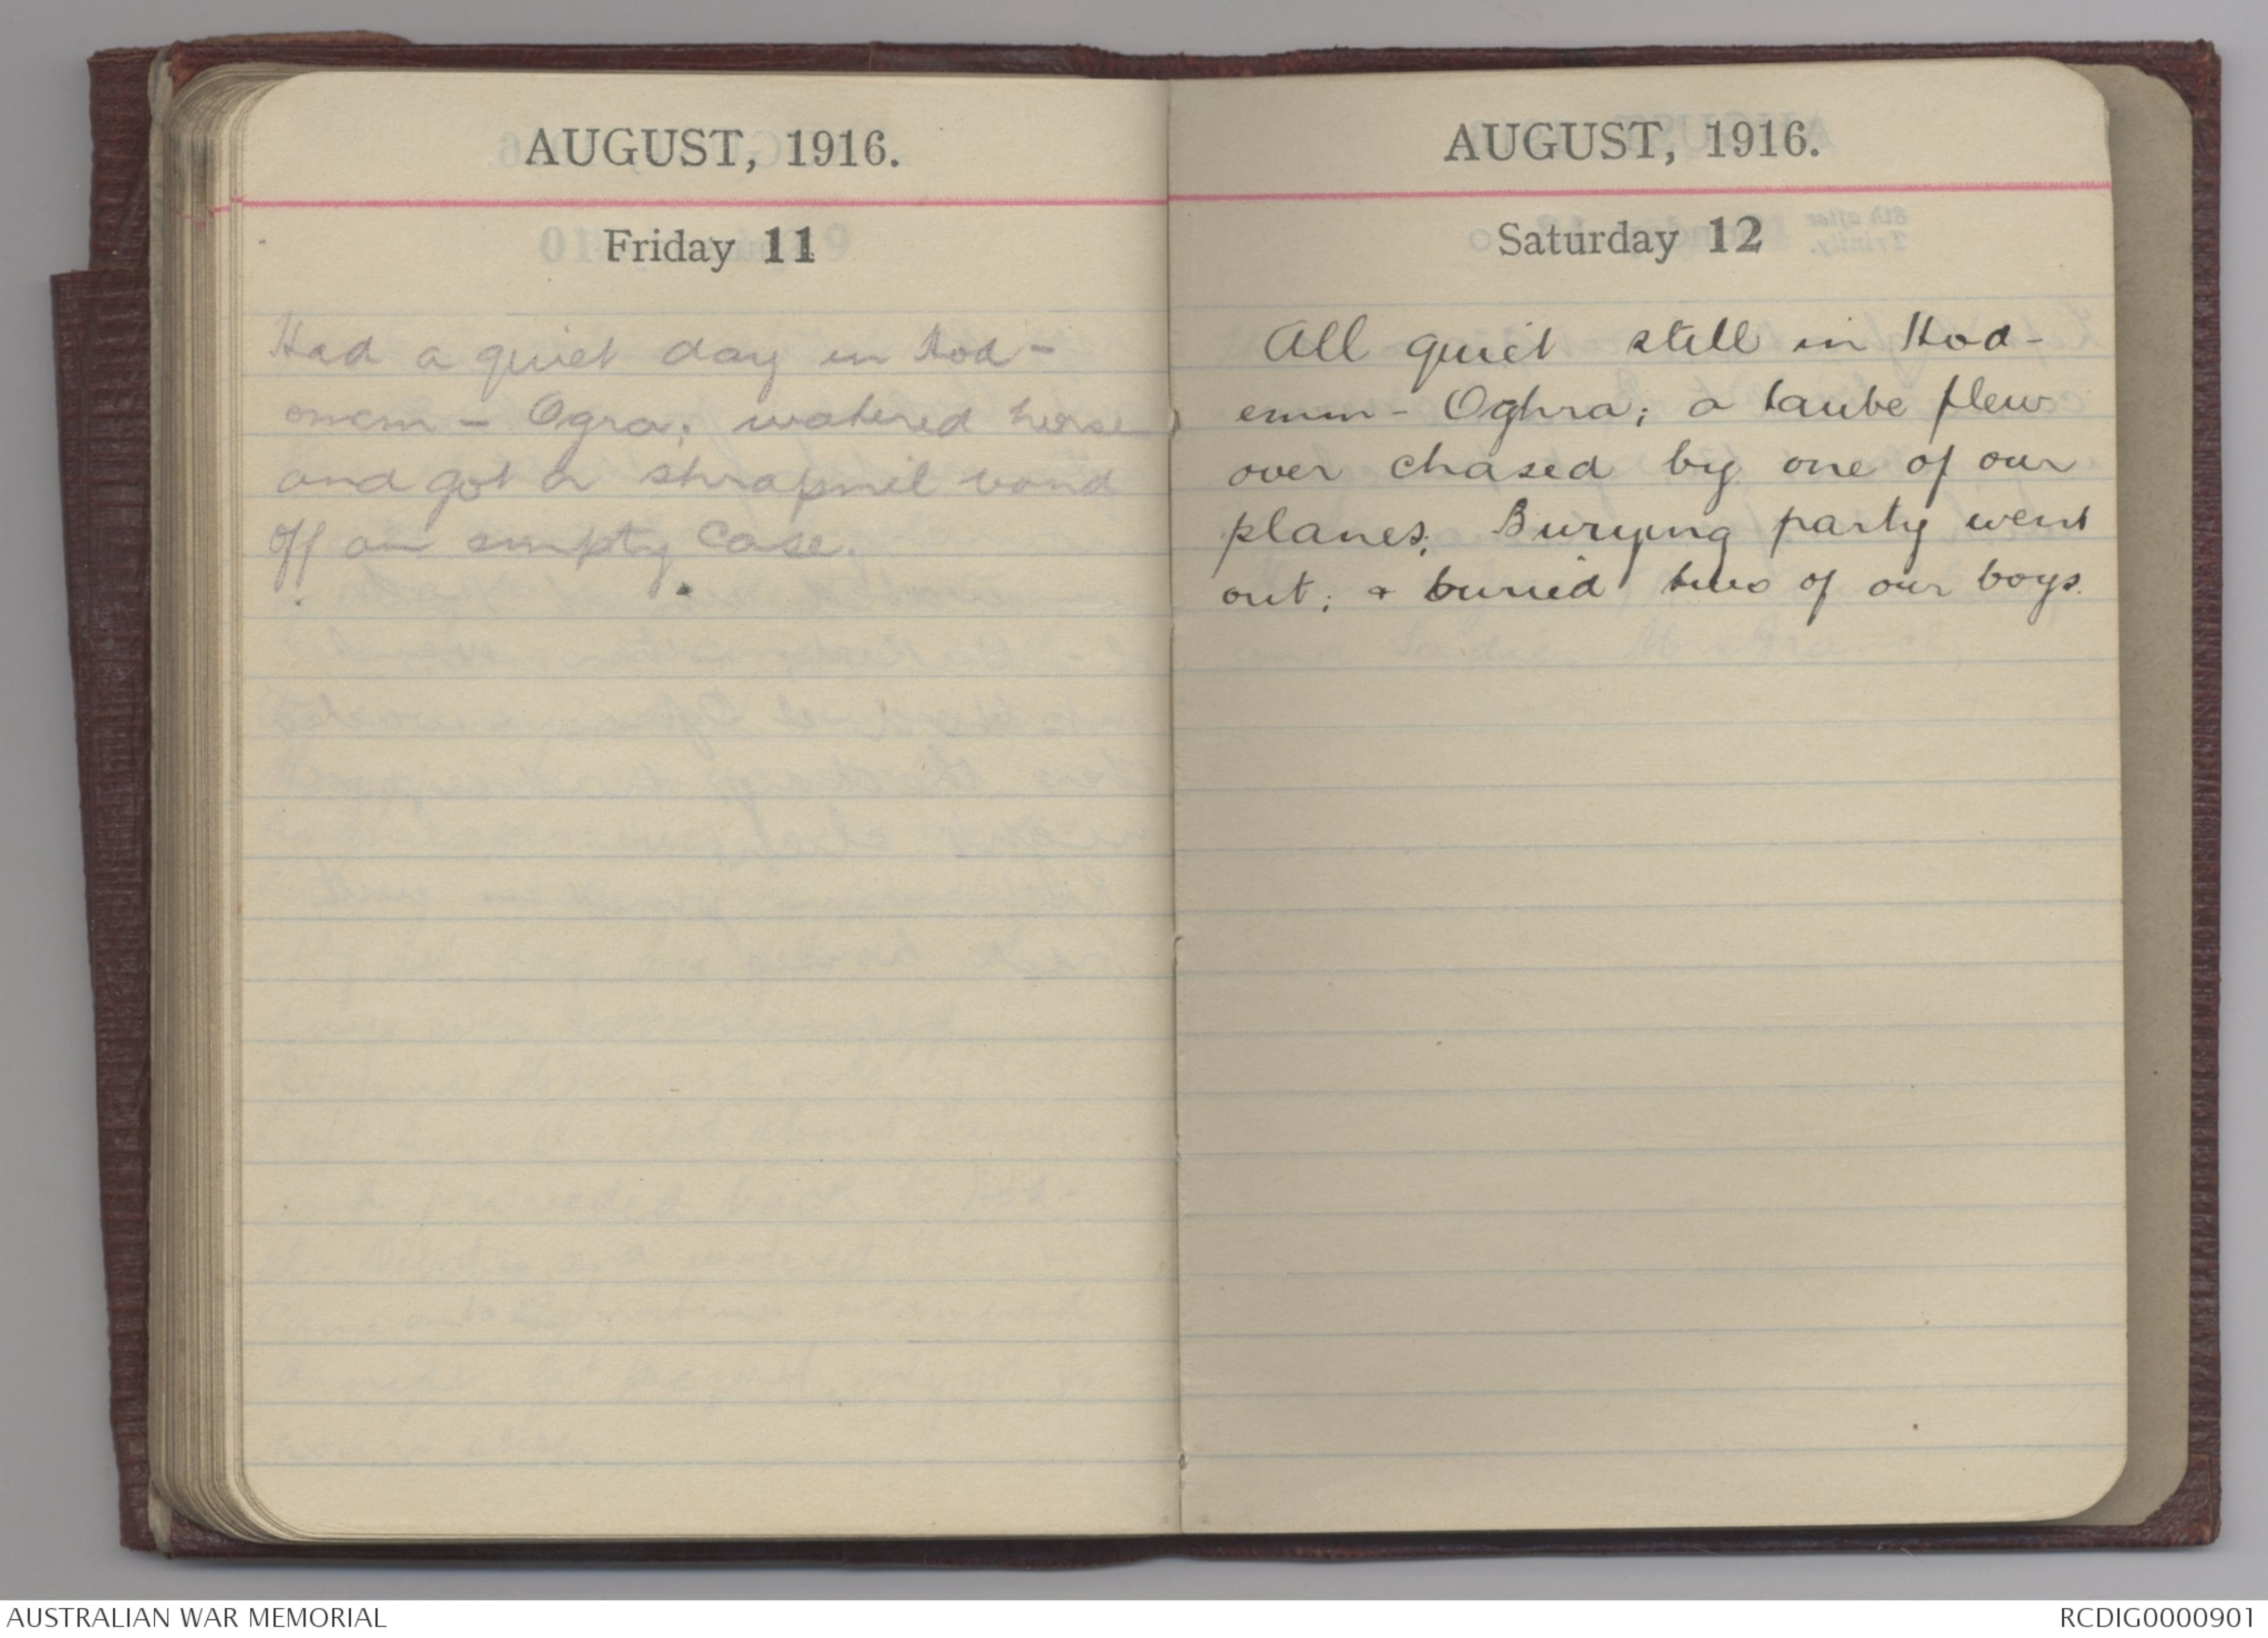 AUGUST, 1916.
Friday 11
Had a quiet day in Hod-
omem - Ogra; watered horse
and got a shrapnel band
off an empty case.
AUGUST, 1916.
Saturday 12
All quiet still in Hod-
emm - Oghra; a taube flew
over chased by one of our
planes; Burying party went
out; & buried two of our boys.
AUSTRALIAN WAR MEMORIAL
RCDIG0000901